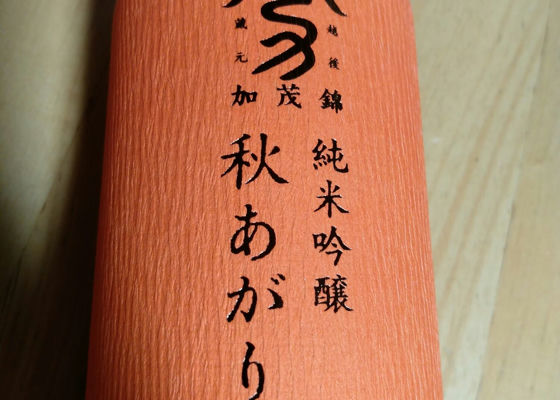 越後
蔵元
加茂錦
純米吟醸
秋あがり